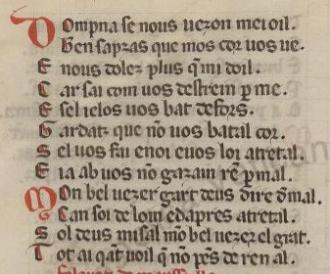 Dompna se nous uezon mei oil.
Ben sapzas que mos cor uos ue.
E nous dolez plus q̃ mi doil.
Car sai com uos destrein ꝑ me.
E sel ielos uos bat defors.
Gardaz que nõ uos batal cor.
Sel uos fai enoi e uos loi atretal.
E ia ab uos nõ gazain rẽ ꝑ mal.
Mon bel uezer gart deus dire d̃ mal.
S Can soi de loin e da pres atretal.
Sol deus mi sal mõ bel uezer el grat.
Tot ai qãt uoil q̃ nõ pẽs de ren al.